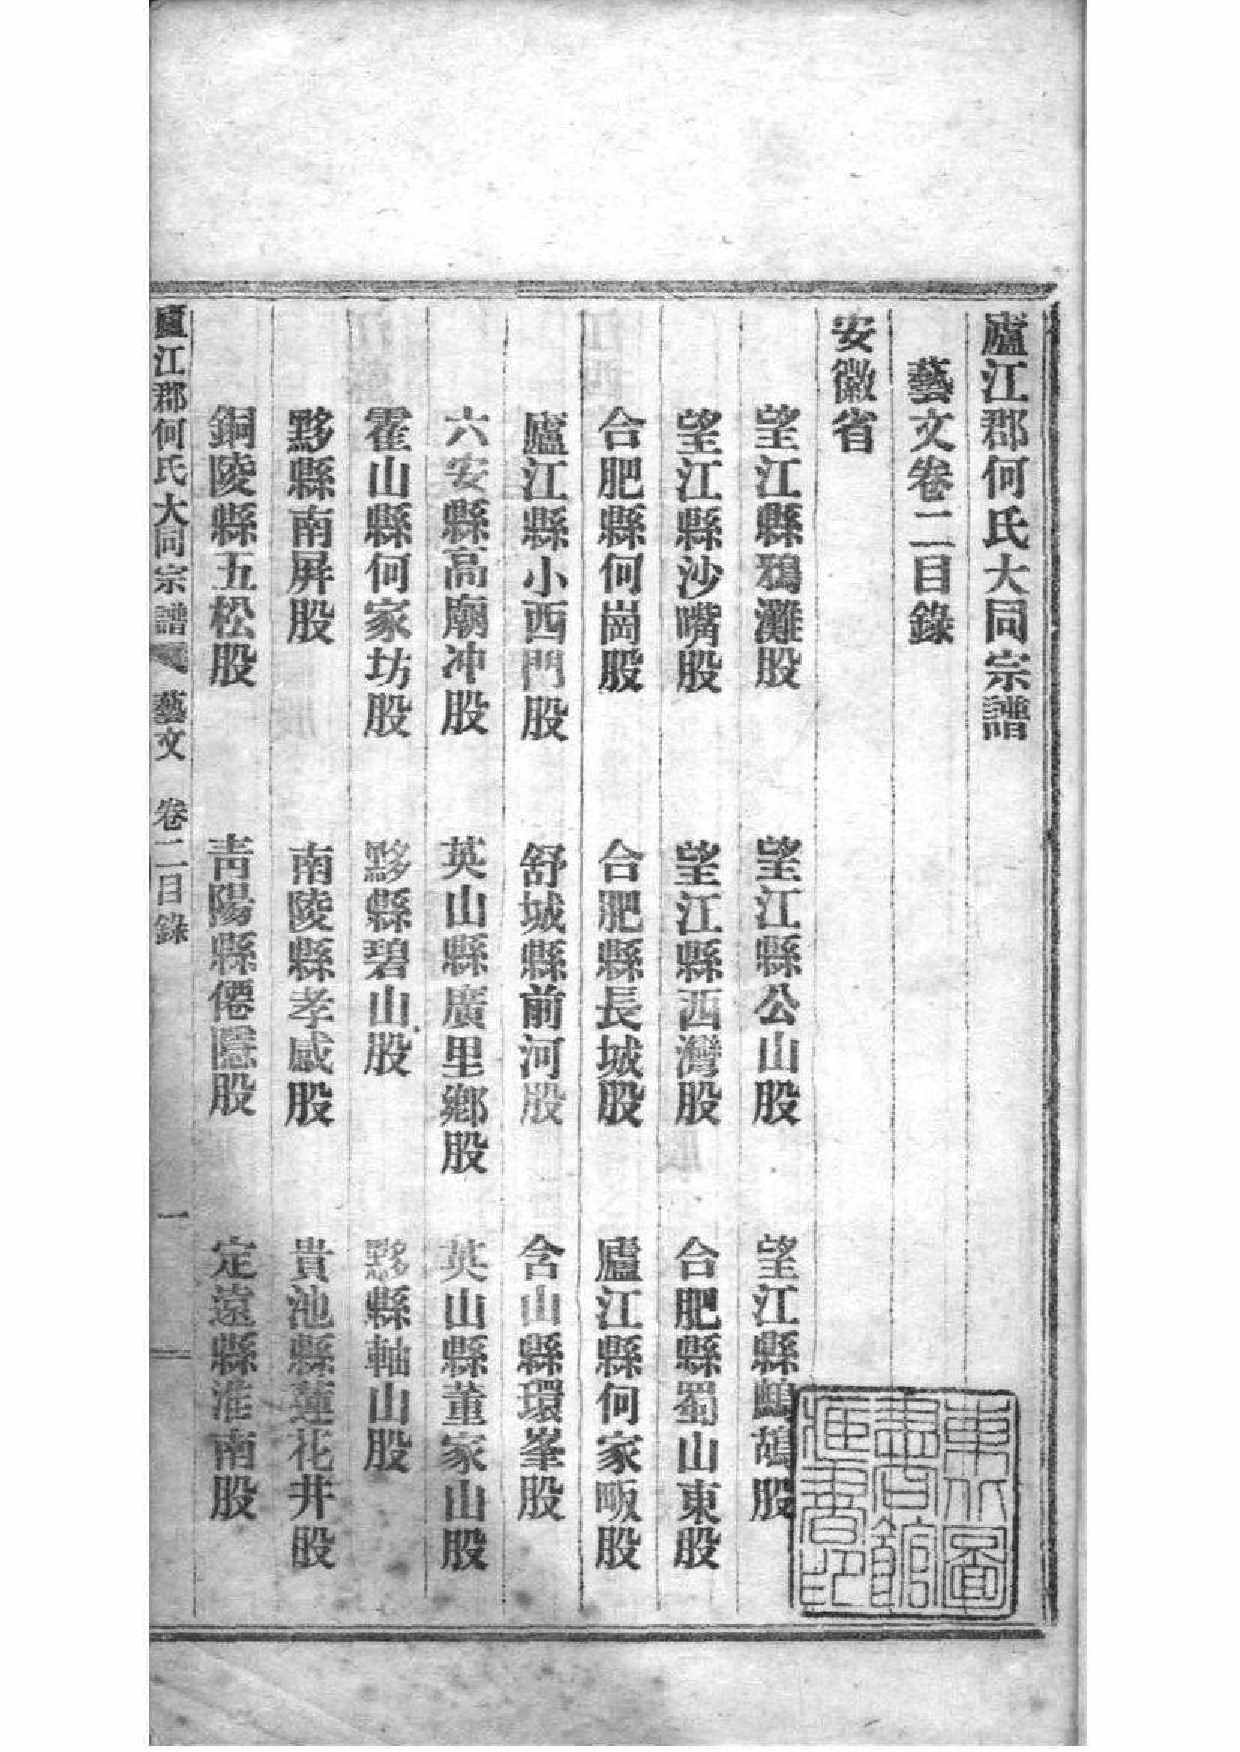 廬江郡何氏大同宗譜
藝文卷二目錄
安徽省
望江縣鴉灘股 望江縣公山股 望江縣鷓鴣股
望江縣沙嘴股 望江縣西灣股 合肥縣蜀山東股
合肥縣何崗股 合肥縣長城股 廬江縣何家畈股
廬江縣小西門股 舒城縣前河股 含山縣環峯股
六安縣高廟冲股 英山縣廣里鄉股 英山縣董家山股
霍山縣何家坊股 黟縣碧山股 黟縣軸山股
黟縣南屏股 南陵縣孝感股 貴池縣蓮花井股
銅陵縣五松股 青陽縣僊隱股 定遠縣淮南股
廬江郡何氏大同宗譜 藝文 卷二目錄 一
東北圖
書館
藏書印